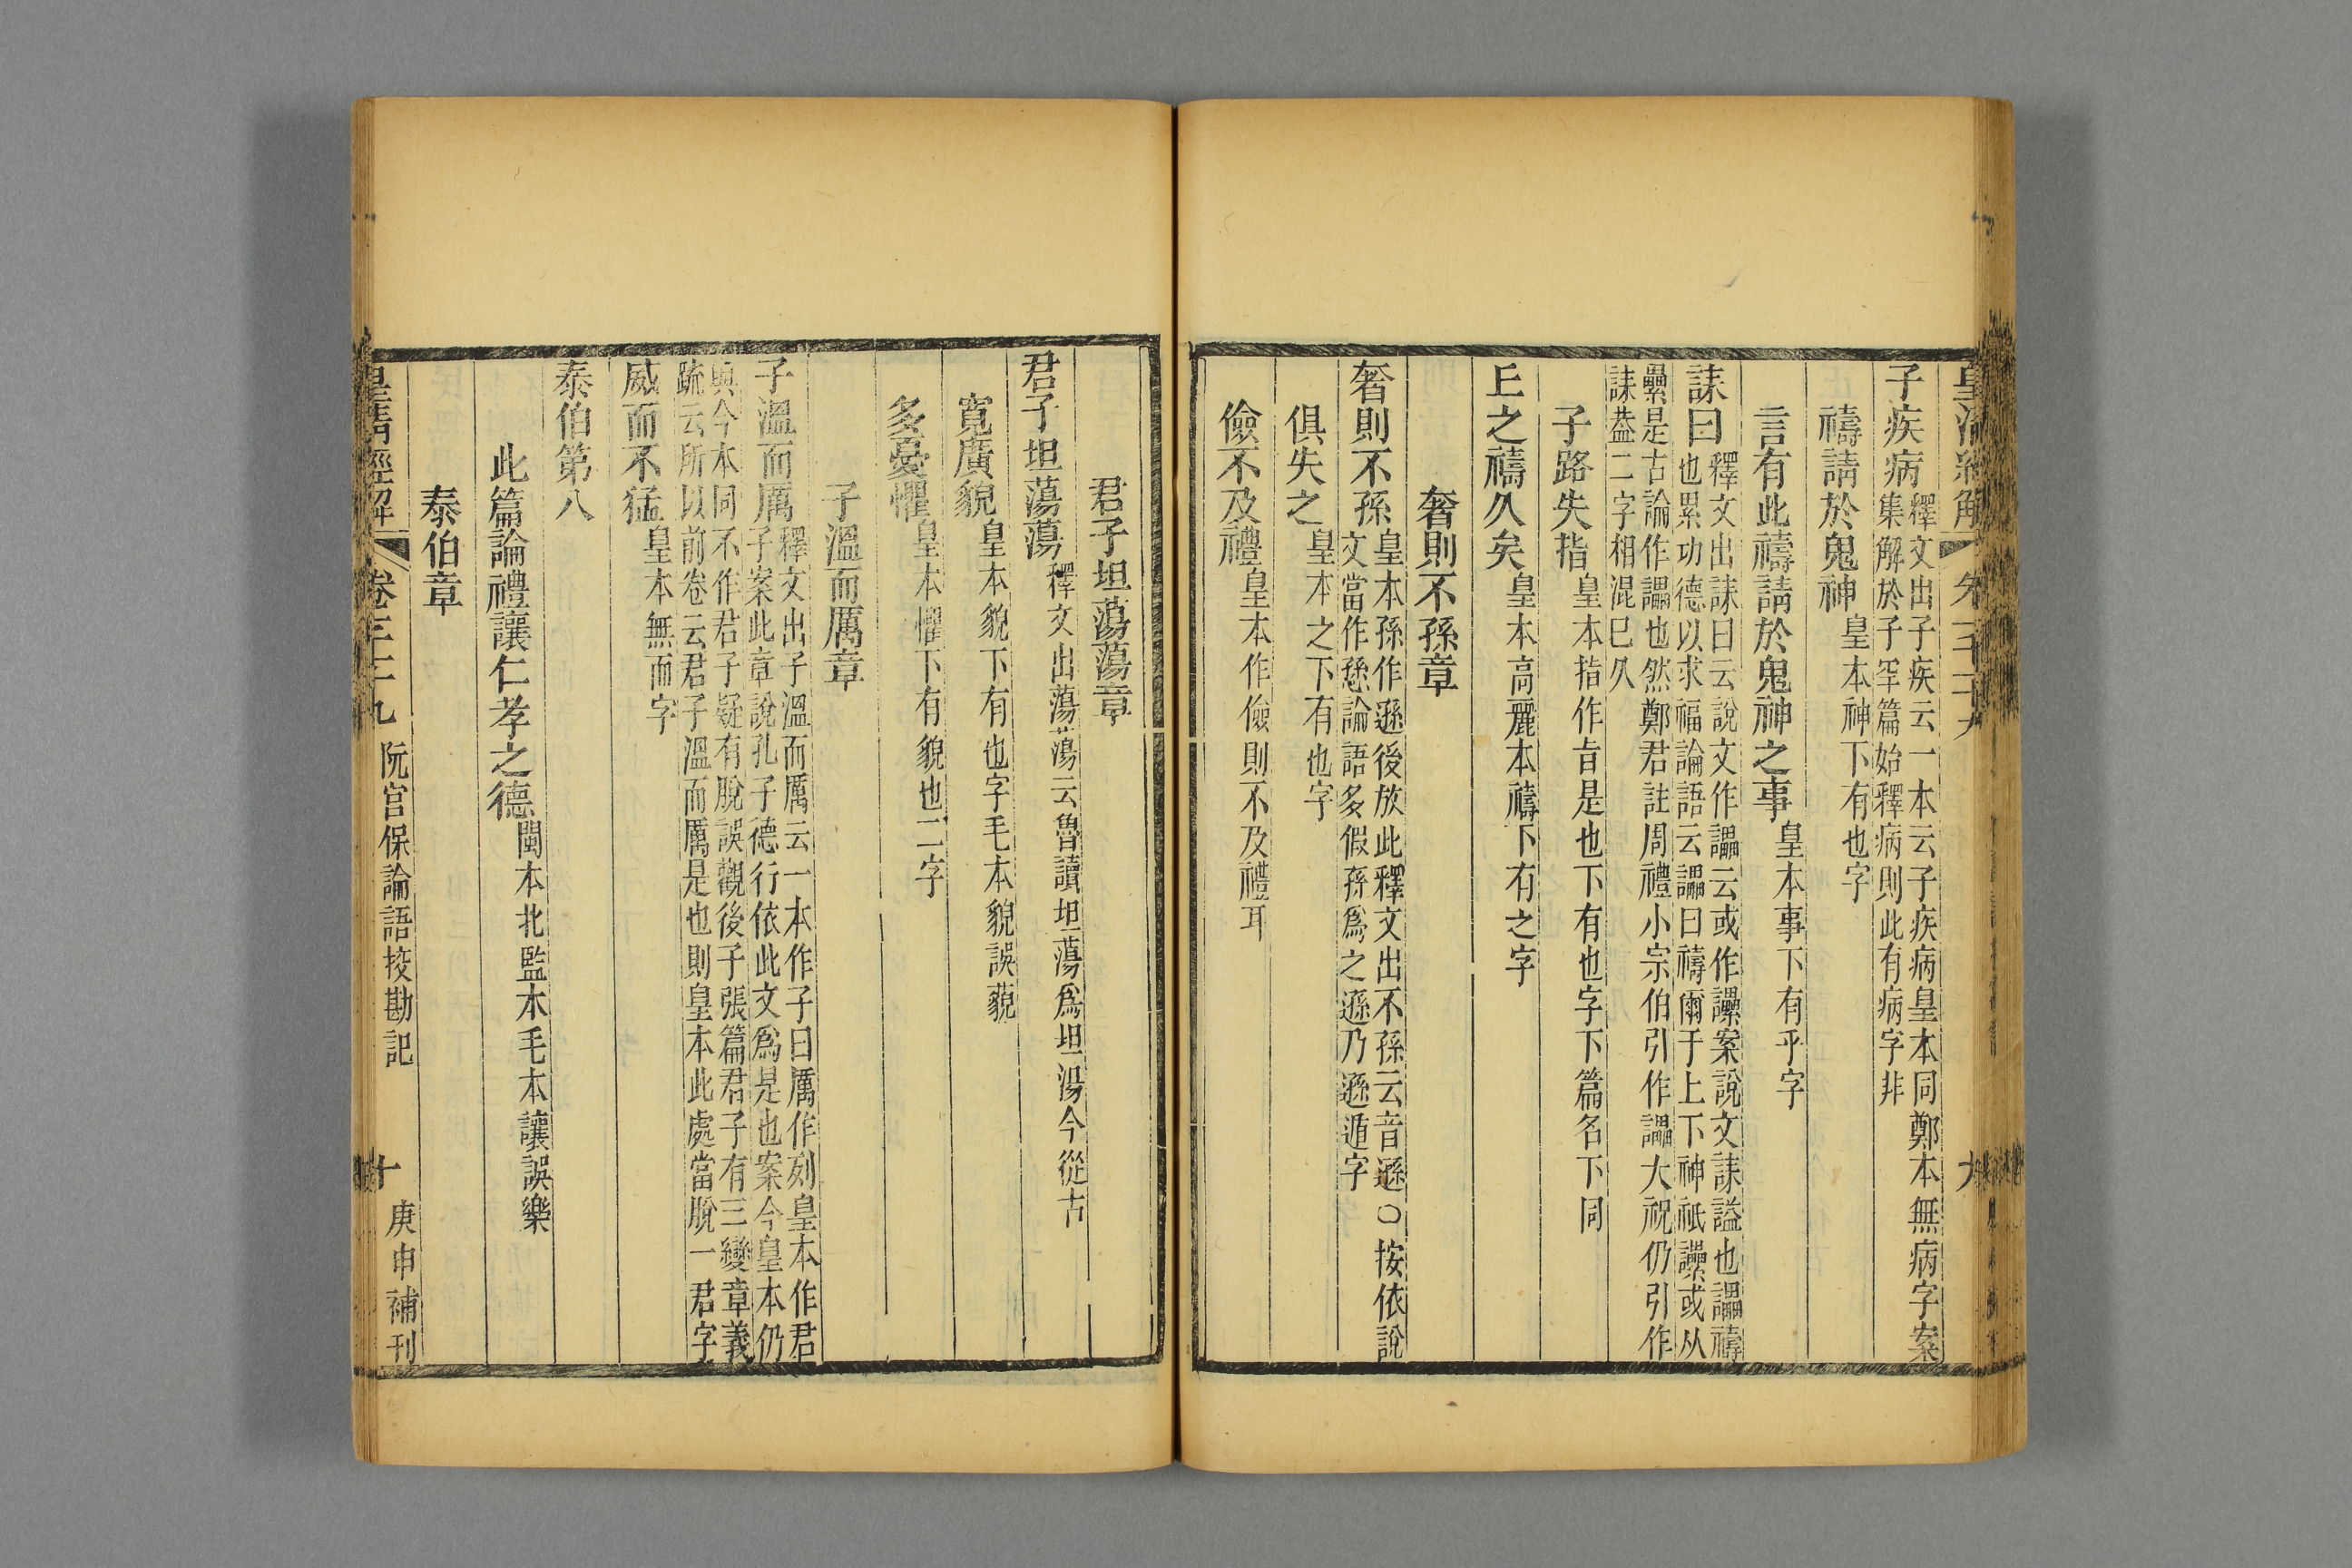 皇清經解
子疾病釋文出子疾云一本云子疾病皇本同鄭本無病字案
集解於子罕篇始釋病則此有病字非
禱請於鬼神皇本神下有也字
言有此禱請於鬼神之事皇本事下有乎字
誄曰釋文出誄曰云說文作讄云或作𧮢案說文誄謚也讄禱
也累功德以求福論語云讄曰禱爾于上下神祇𧮢或从
纍是古論作讄也然鄭君註周禮小宗伯引作讄大祝仍引作
誄葢二字相混已久
子路失指皇本指作旨是也下有也字下篇名下同
丘之禱久矣皇本高麗本禱下有之字
奢則不孫章
奢則不孫皇本孫作遜後放此釋文出不孫云音遜○按依說
文當作愻論語多假孫爲之遜乃遜遁字
俱失之皇本之下有也字
儉不及禮皇本作儉則不及禮耳
君子坦蕩蕩章
君子坦蕩蕩釋文出蕩蕩云魯讀坦蕩爲坦湯今從古
寛廣貌皇本貌下有也字毛本貌誤藐
多憂懼皇本懼下有貌也二字
子溫而厲章
子溫而厲釋文出子溫而厲云一本作子曰厲作列皇本作君
子案此章說孔子德行依此文爲是也案今皇本仍
與今本同不作君子疑有脫誤觀後子張篇君子有三變章義
疏云所以前卷云君子溫而厲是也則皇本此處當脫一君字
威而不猛皇本無而字
泰伯第八
此篇論禮讓仁孝之德閩本北監本毛本讓誤樂
泰伯章
皇清經解 卷 阮宮保論語挍勘記 十 庚申補刊